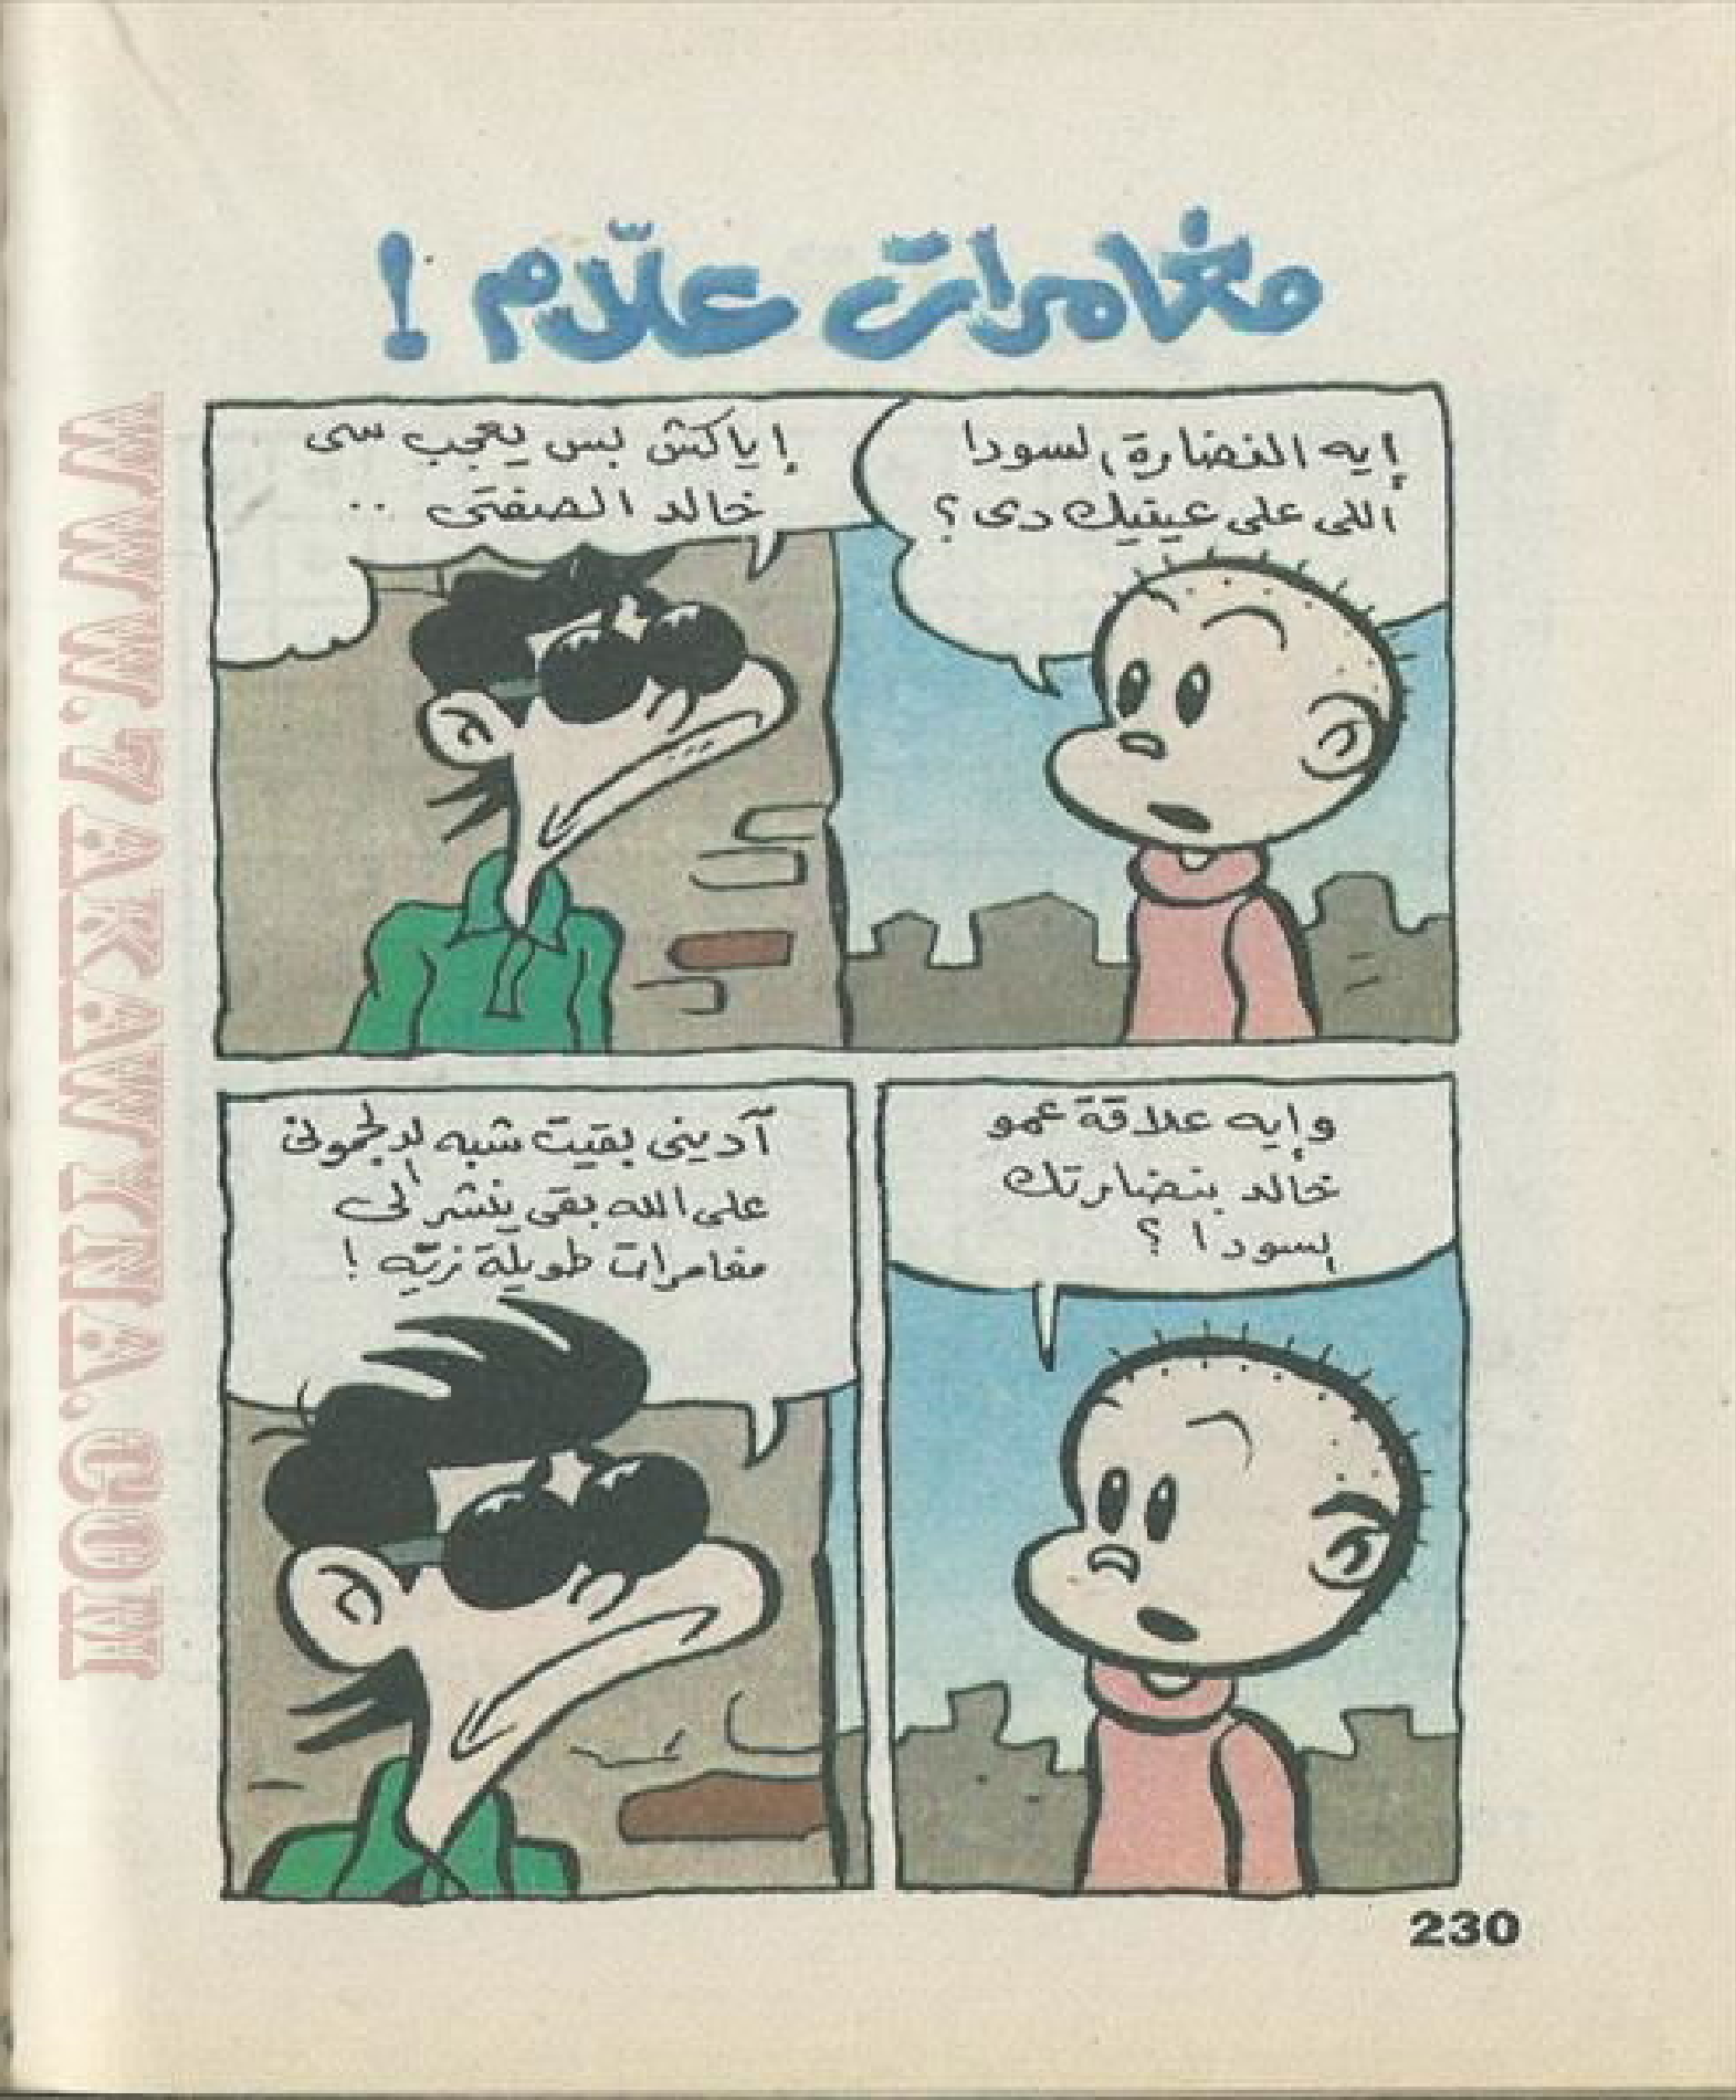 مغامرات علّام !
إيه النضارة السودا
اللى على عينيك دى؟
إياكش بس يعجب سى
خالد الصفتى ..
وإيه علاقة عمو
خالد بنضارتك
السودا ؟
آدينى بقيت شبه
على الله بقى ينشر لى
مغامرات طويلة زيّه !
230
WWW.7AKAWTNA.COM